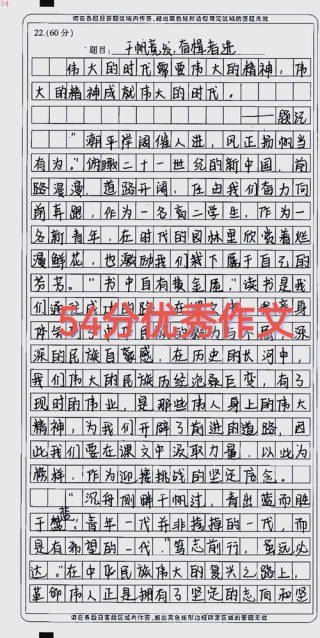 54
请在各题目答题区域内作答,超出黑色矩形边框限定区域的答题无效
22.(60分)
题目:千帆竞发,有楫者进
伟大的时代需要伟大的精神,伟
大的精神成就伟大的时代。
——题记
"潮平岸阔催人进,风正扬帆当
有为。"俯瞰二十一世纪的新中国,前
路漫漫,道路开阔,任由我们奋力向
前奔跑,作为一名高二学生,作为一
名新青年,在时代的园林里欣赏着烂
漫鲜花,也激励我们栽下属于自己的
芳芳。"书中自有黄金屋。"读书是我
54分优秀作文
深的民族自豪感,在历史的长河中,
我们伟大的民族历经沧桑巨变,有了
现时的伟业,是那些伟人身上的伟大
精神,为我们开辟了前进的道路,因
此我们要在课文中汲取力量,以此为
榜样,作为迎接挑战的坚定信念。
"沉舟侧畔千帆过,青出蓝而胜
于蓝"青年一代并非垮掉的一代,而
是有希望的一代。"笃志前行,虽远必
达。"在中华民族伟大的复兴之路上,
革命伟人正是拥有了坚定的志向和坚
请在各题目答题区域内作答,超出黑色矩形边框限定区域的答题无效